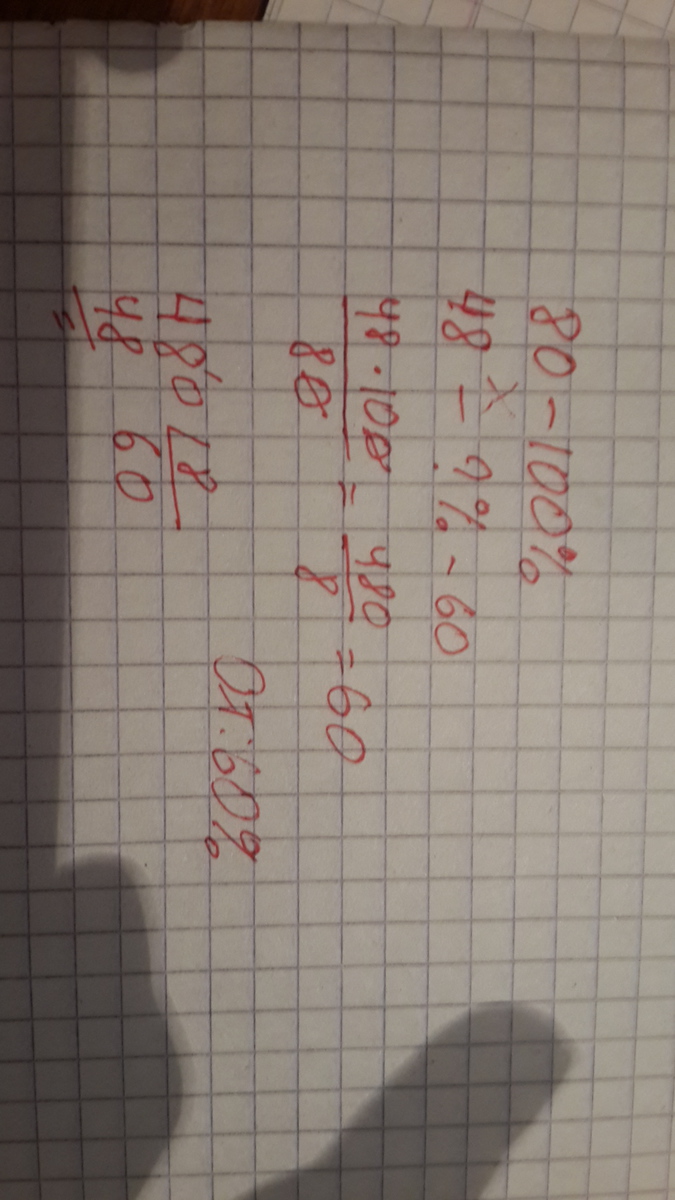 80 - 100%
48 - ?% - 60
48 · 100 / 80 = 480 / 8 = 60
От: 60%
480 | 8
48 60
=